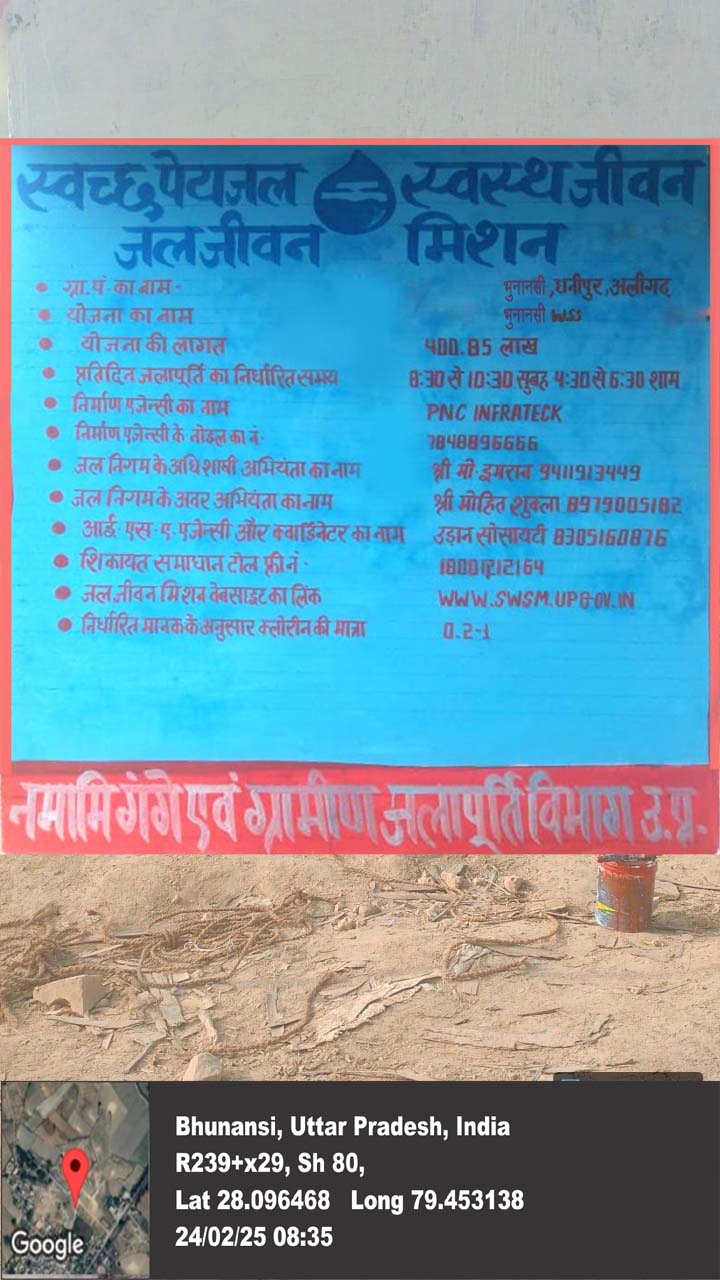 स्वच्छ पेयजल स्वस्थ जीवन
जल जीवन मिशन
ग्रा.पं. का नाम - भुनानसी, धनीपुर, अलीगढ़
योजना का नाम भुनानसी WSS
योजना की लागत 400.85 लाख
प्रतिदिन जलापूर्ति का निर्धारित समय 8:30 से 10:30 सुबह 4:30 से 6:30 शाम
निर्माण एजेन्सी का नाम PNC INFRATECK
निर्माण एजेन्सी के नोडल का नं. 7848896666
जल निगम के अधिशाषी अभियंता का नाम श्री मो. इमरान 9411913449
जल निगम के अवर अभियंता का नाम श्री मोहित शुक्ला 8979005182
आई. एस. ए. एजेन्सी और क्वार्डिनेटर का नाम उड़ान सोसायटी 8305160876
शिकायत समाधान टोल फ्री नं. 18001212164
जल जीवन मिशन वेबसाइट का लिंक WWW.SWSM.UPGOV.IN
निर्धारित मानक के अनुसार क्लोरीन की मात्रा 0.2-1
नमामि गंगे एवं ग्रामीण जलापूर्ति विभाग उ.प्र.
Bhunansi, Uttar Pradesh, India
R239+x29, Sh 80,
Lat 28.096468 Long 79.453138
24/02/25 08:35
Google